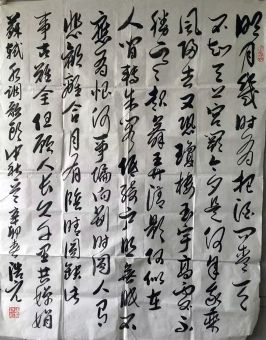 明月幾時有把酒問青天
不知天上宮闕今夕是何年我欲乘
風歸去又恐瓊樓玉宇高處不
勝寒起舞弄清影何似在
人間轉朱閣低綺戶照無眠不
應有恨何事偏向別時圓人有
悲歡離合月有陰晴圓缺此
事古難全但願人長久千里共嬋娟
蘇軾水調歌頭中秋 辛卯春浩元